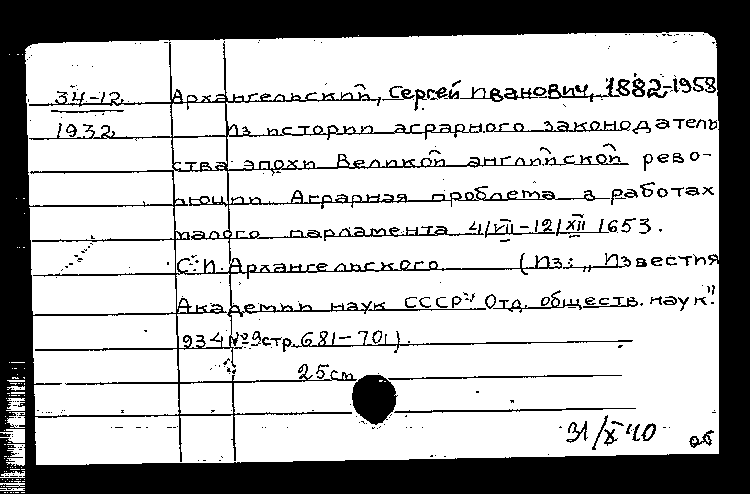 34-12 Архангельский, Сергей Иванович, 1882-1958
1932 Из истории аграрного законодатель
ства эпохи Великой английской рево-
люции Аграрная проблема в работах
малого парламента 4/VII-12/XII 1653.
С.И. Архангельского (Из: „Известия
Академии наук СССР" Отд. обществ. наук".
1934 № 9 стр. 681-701).
25 см
31/X 40 об